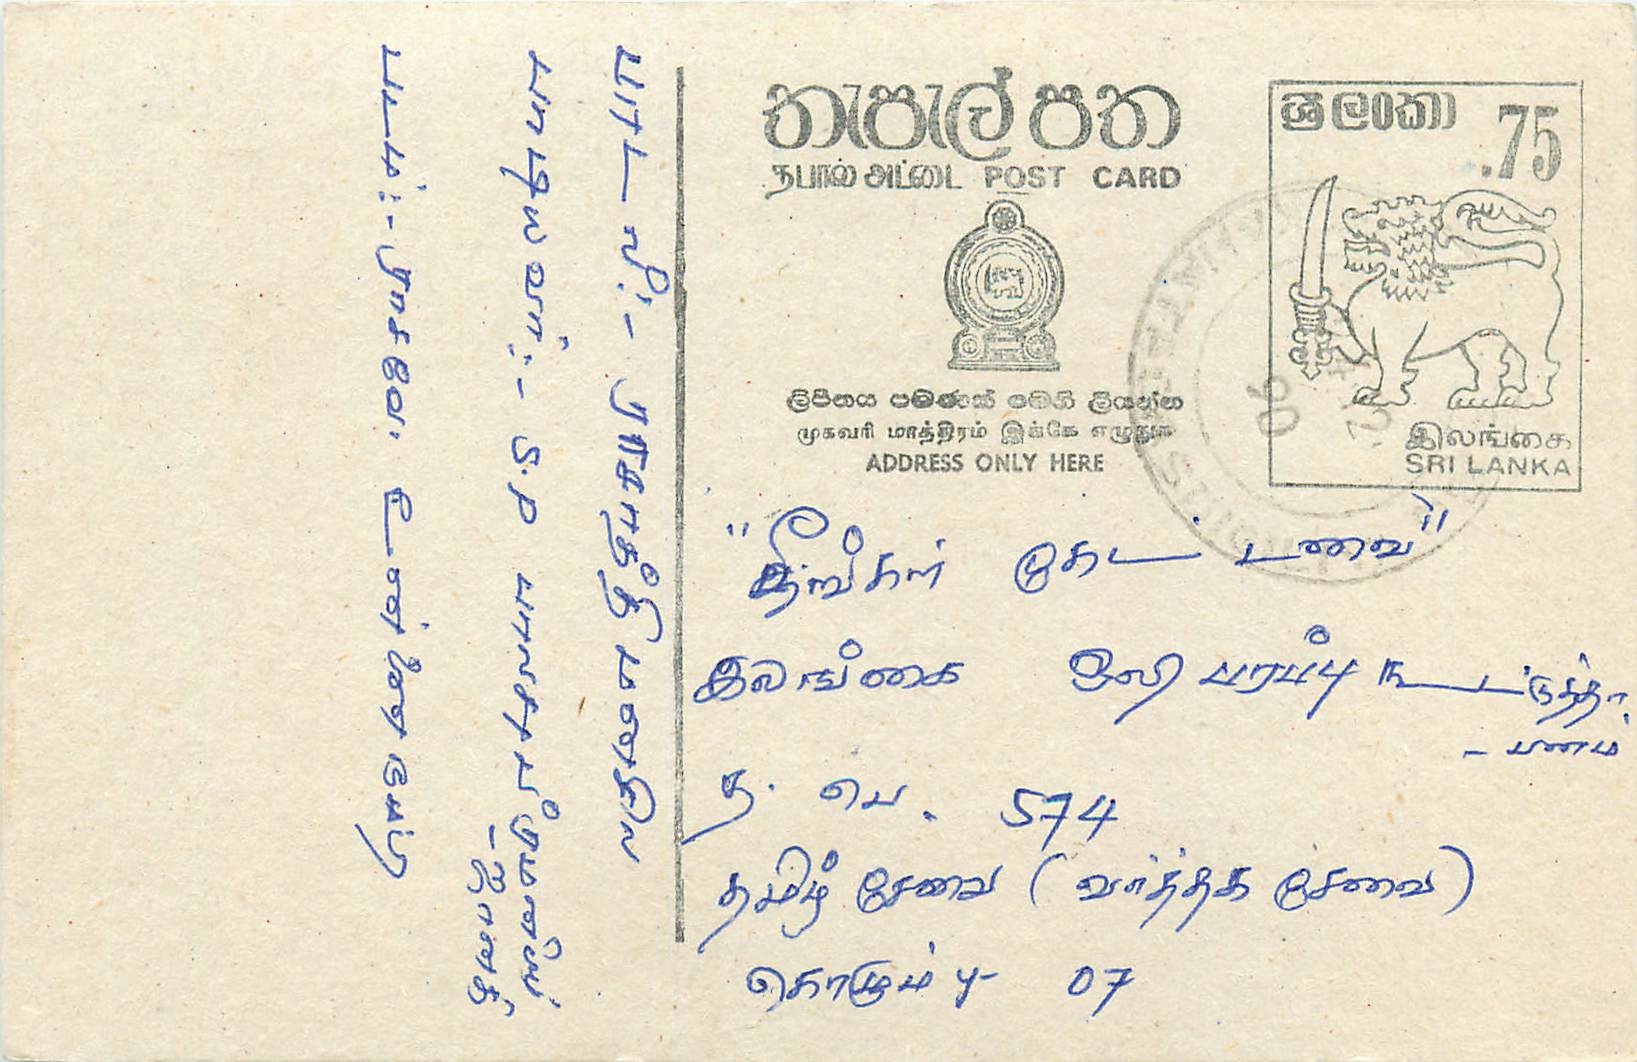 தැපැල් පත
தபால் அட்டை POST CARD
ශ්‍රී ලංකා .75
ලිපිනය පමණක් මෙහි ලියන්න
முகவரி மாத்திரம் இக்கே எழுதுக
ADDRESS ONLY HERE
இலங்கை
SRI LANKA
"நீங்கள் கேட்டவை"
இலங்கை ஒலிபரப்பு கூட்டுத்தா
- பனம்
த. பெ. 574
தமிழ் சேவை (வர்த்தக சேவை)
கொழும்பு - 07
பாடல்:- ராசாத்தி மனசில
பாடியவர்:- S.P பாலசுப்ரமணியம்
- ஜானகி
படம்:- ராசாவே உன்னை நம்பி